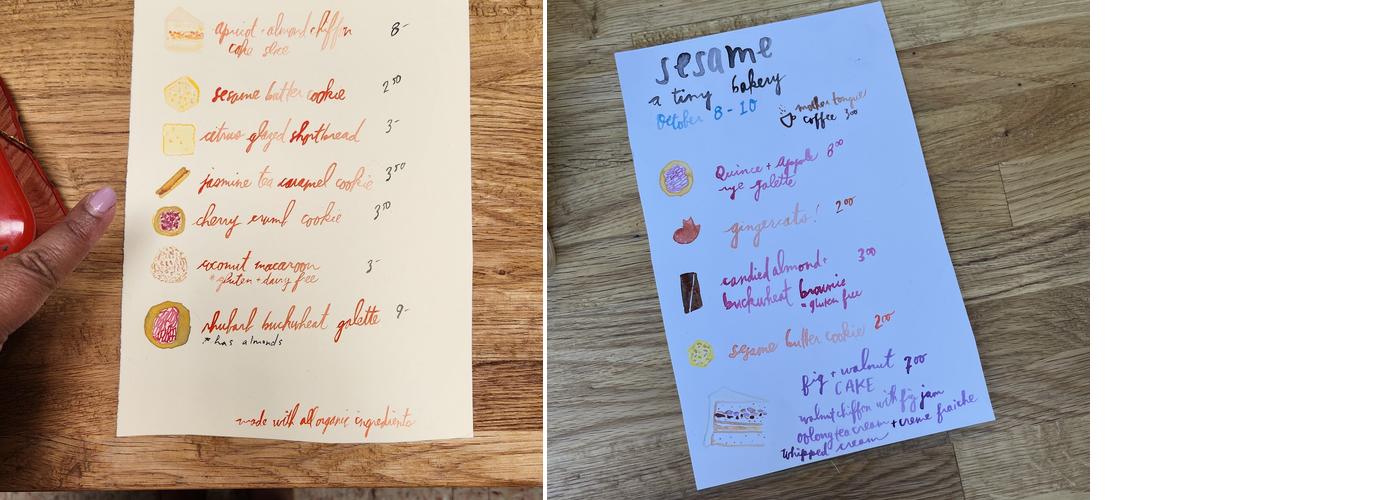 apricot + almond chiffon 8-
cake slice
sesame butter cookie 2 50
citrus glazed shortbread 3-
jasmine tea caramel cookie 3 50
cherry crumb cookie 3 50
coconut macaroon 3-
*gluten + dairy free
rhubarb buckwheat galette 9-
* has almonds
made with all organic ingredients
sesame
a tiny bakery
October 8 - 10
mother tongue
coffee 3 00
Quince + Apple 8 00
rye galette
gingercats! 2 00
candied almond + 3 00
buckwheat brownie
- gluten free
sesame butter cookie 2 00
fig + walnut 7 00
CAKE
walnut chiffon with fig jam
oolong tea cream + creme fraiche
whipped cream